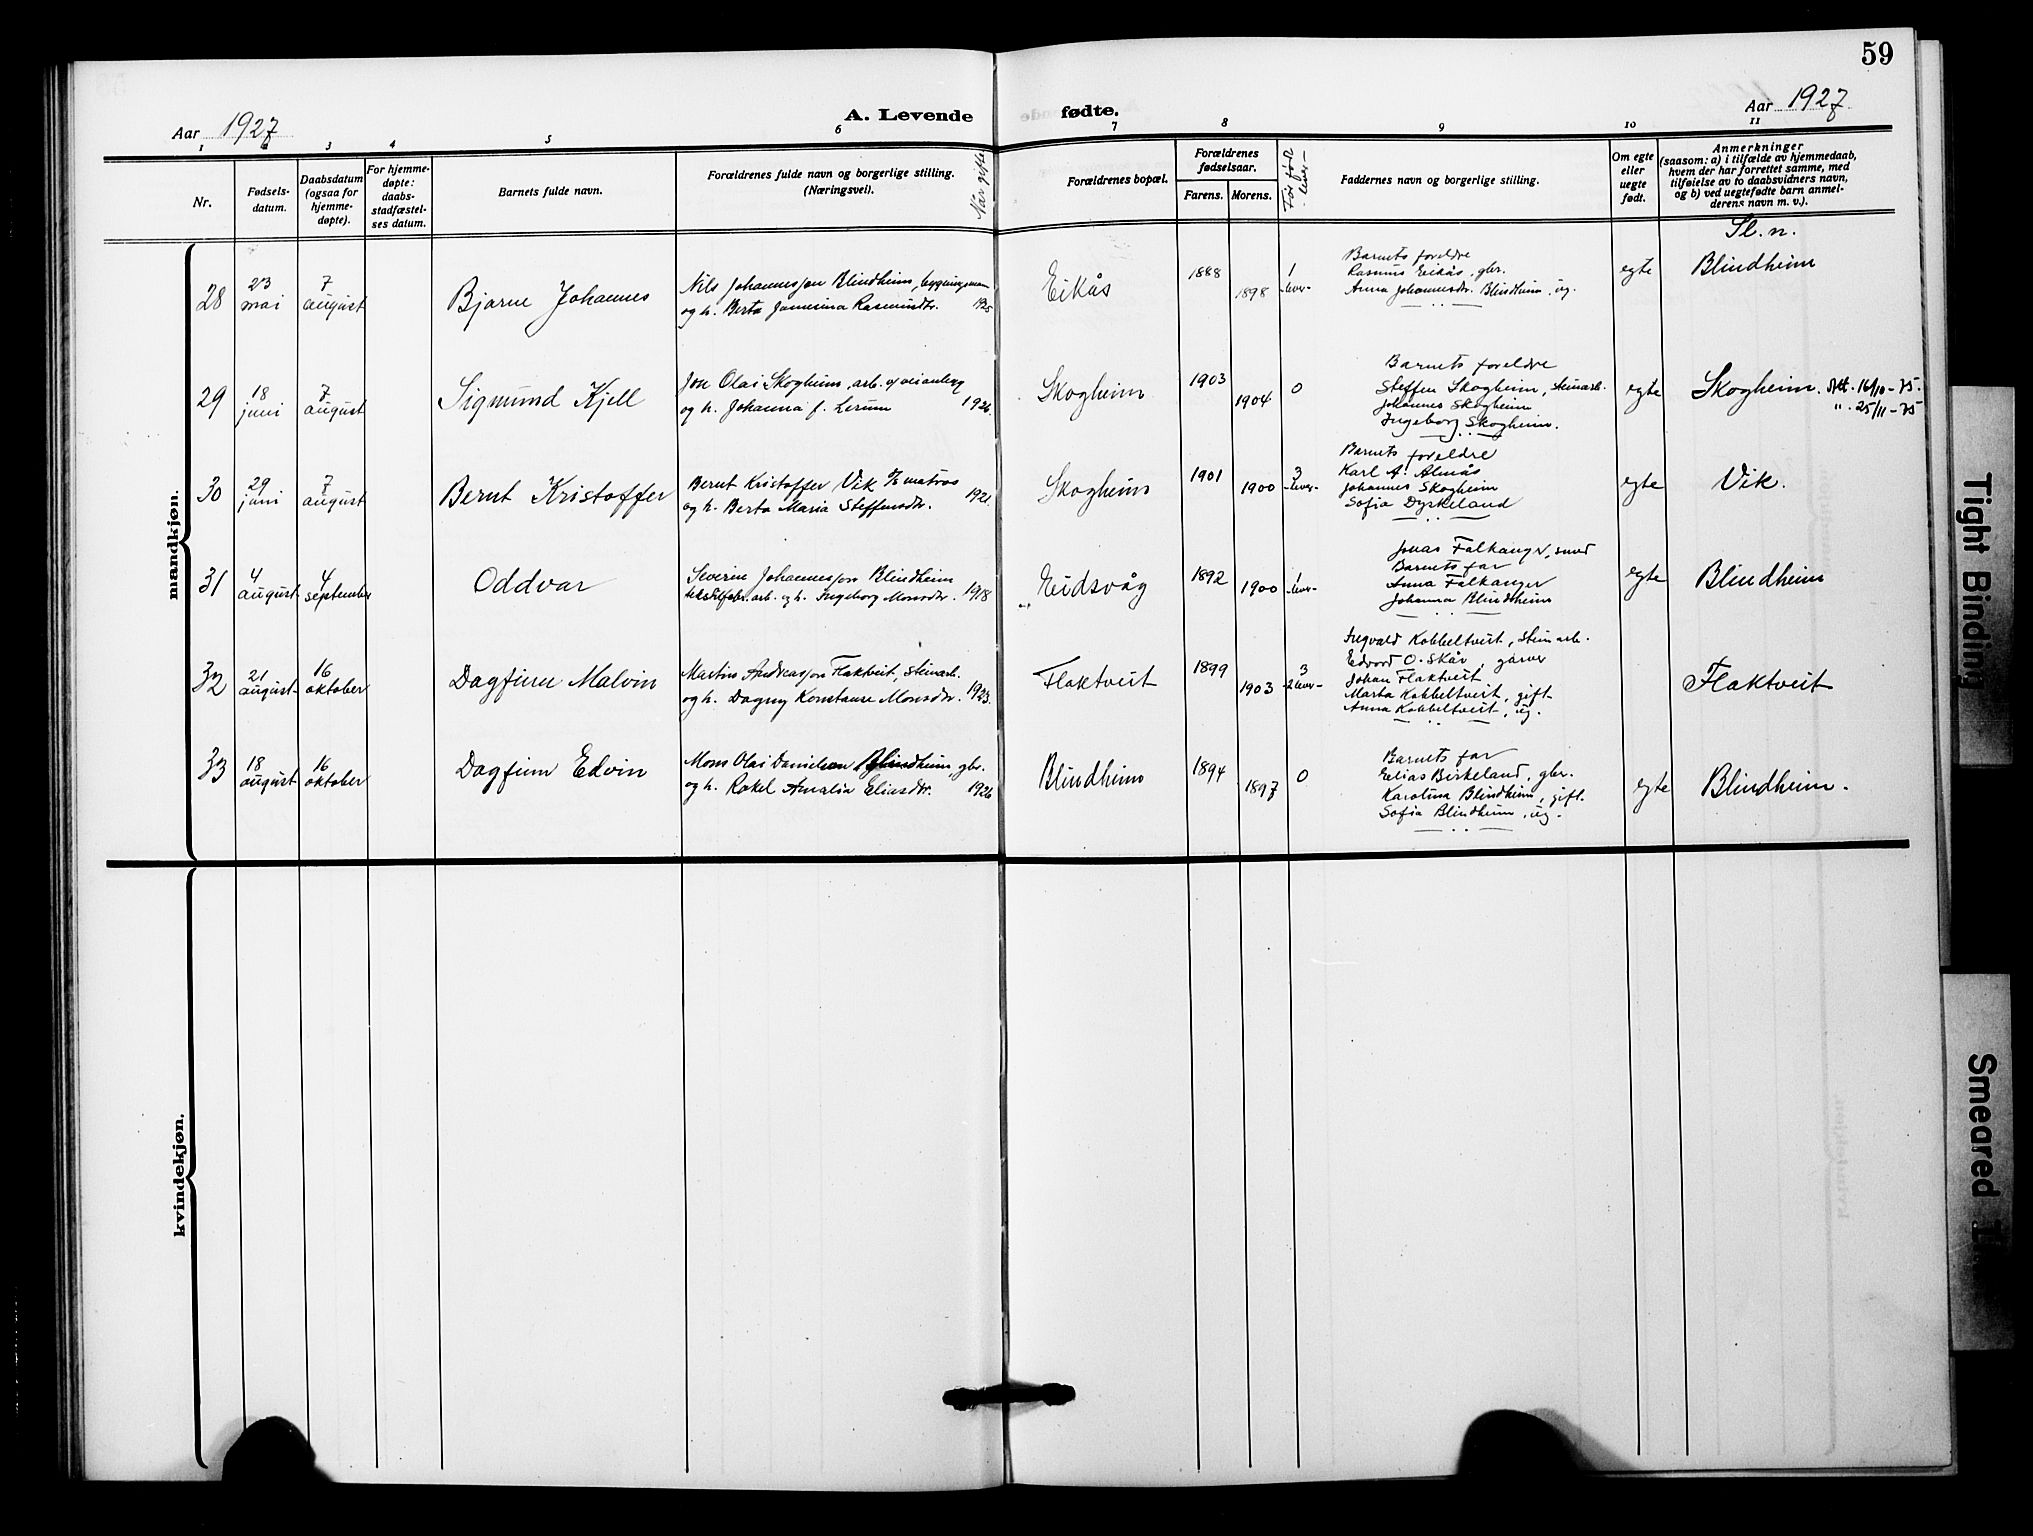 59
Aar 1927
A. Levende fødte.
Aar 1927
1 2 3 4 5 6 7 8 9 10 11
Nr.
Fødsels-
datum.
Daabsdatum
(ogsaa for
hjemme-
døpte).
For hjemme-
døpte:
daabs-
stadfæstel-
ses datum.
Barnets fulde navn.
Forældrenes fulde navn og borgerlige stilling.
(Næringsvei).
Når gifte
Forældrenes bopæl.
Forældrenes
fødselsaar.
Farens. Morens.
Før født
lever-
Faddernes navn og borgerlige stilling.
Om egte
eller
uegte
født.
Anmerkninger
(saasom: a) i tilfælde av hjemmedaab,
hvem der har forrettet samme, med
tilføielse av to daabsvidners navn,
og b) ved uegtefødte barn anmel-
derens navn m. v.).
Sl. n.
mandkjøn.
28
23
mai
7
august
Bjarne Johannes
Nils Johannesson Blindheim, bygningsmann
og h. Berta Jamesina Rasmusdtr. 1925
Eikås
1888
1898
1
lever-
Barnets foreldre
Rasmus Eikås, gbr.
Anna Johannesdr. Blindheim, ug.
egte
Blindheim
29
18
juni
7
august
Sigmund Kjell
Jon Olai Skogheim, arb. v/veianlegg
og h. Johanna f. Lerum 1926
Skogheim
1903
1904
0
Barnets foreldre
Steffen Skogheim, steinarb.
Johannes Skogheim
Ingeborg Skogheim.
egte
Skogheim. Att. 16/10-75.
". 25/11-75
30
29
juni
7
august
Bernt Kristoffer
Bernt Kristoffer Vik matros
og h. Berta Maria Steffensdr. 1921
Skogheim
1901
1900
3
lever-
Barnets foreldre
Karl A. Almås
Johannes Skogheim
Sofia Dyrkeland
egte
Vik.
31
4
august
4
september
Oddvar
Severin Johannesson Blindheim
arb. og h. Ingeborg Monsdtr. 1918
Eidsvåg
1892
1900
1
lever-
Jonas Falkanger, smed
Barnets far
Anna Falkanger
Johanna Blindheim
egte
Blindheim
32
21
august
16
oktober
Dagfinn Malvin
Martin Andreasson Flaktveit, steinarb.
og h. Dagny Konstanse Monsdtr. 1923.
Flaktveit
1899
1903
3
2 lever-
Ingvald Kobbeltveit, steinarb.
Edvard O. Skår, garver
Johan Flaktveit
Marta Kobbeltveit, gift
Anna Kobbeltveit, ug.
Flaktveit
33
18
august
16
oktober
Dagfinn Edvin
Mons Olai Danielsen Blindheim, gbr.
og h. Rakel Amalia Eliasdtr. 1926
Blindheim
1894
1897
0
Barnets far
Elias Birkeland, gbr.
Karolina Blindheim, gift.
Sofia Blindheim, ug.
egte
Blindheim.
kvindekjøn.
Tight Binding
Smeared